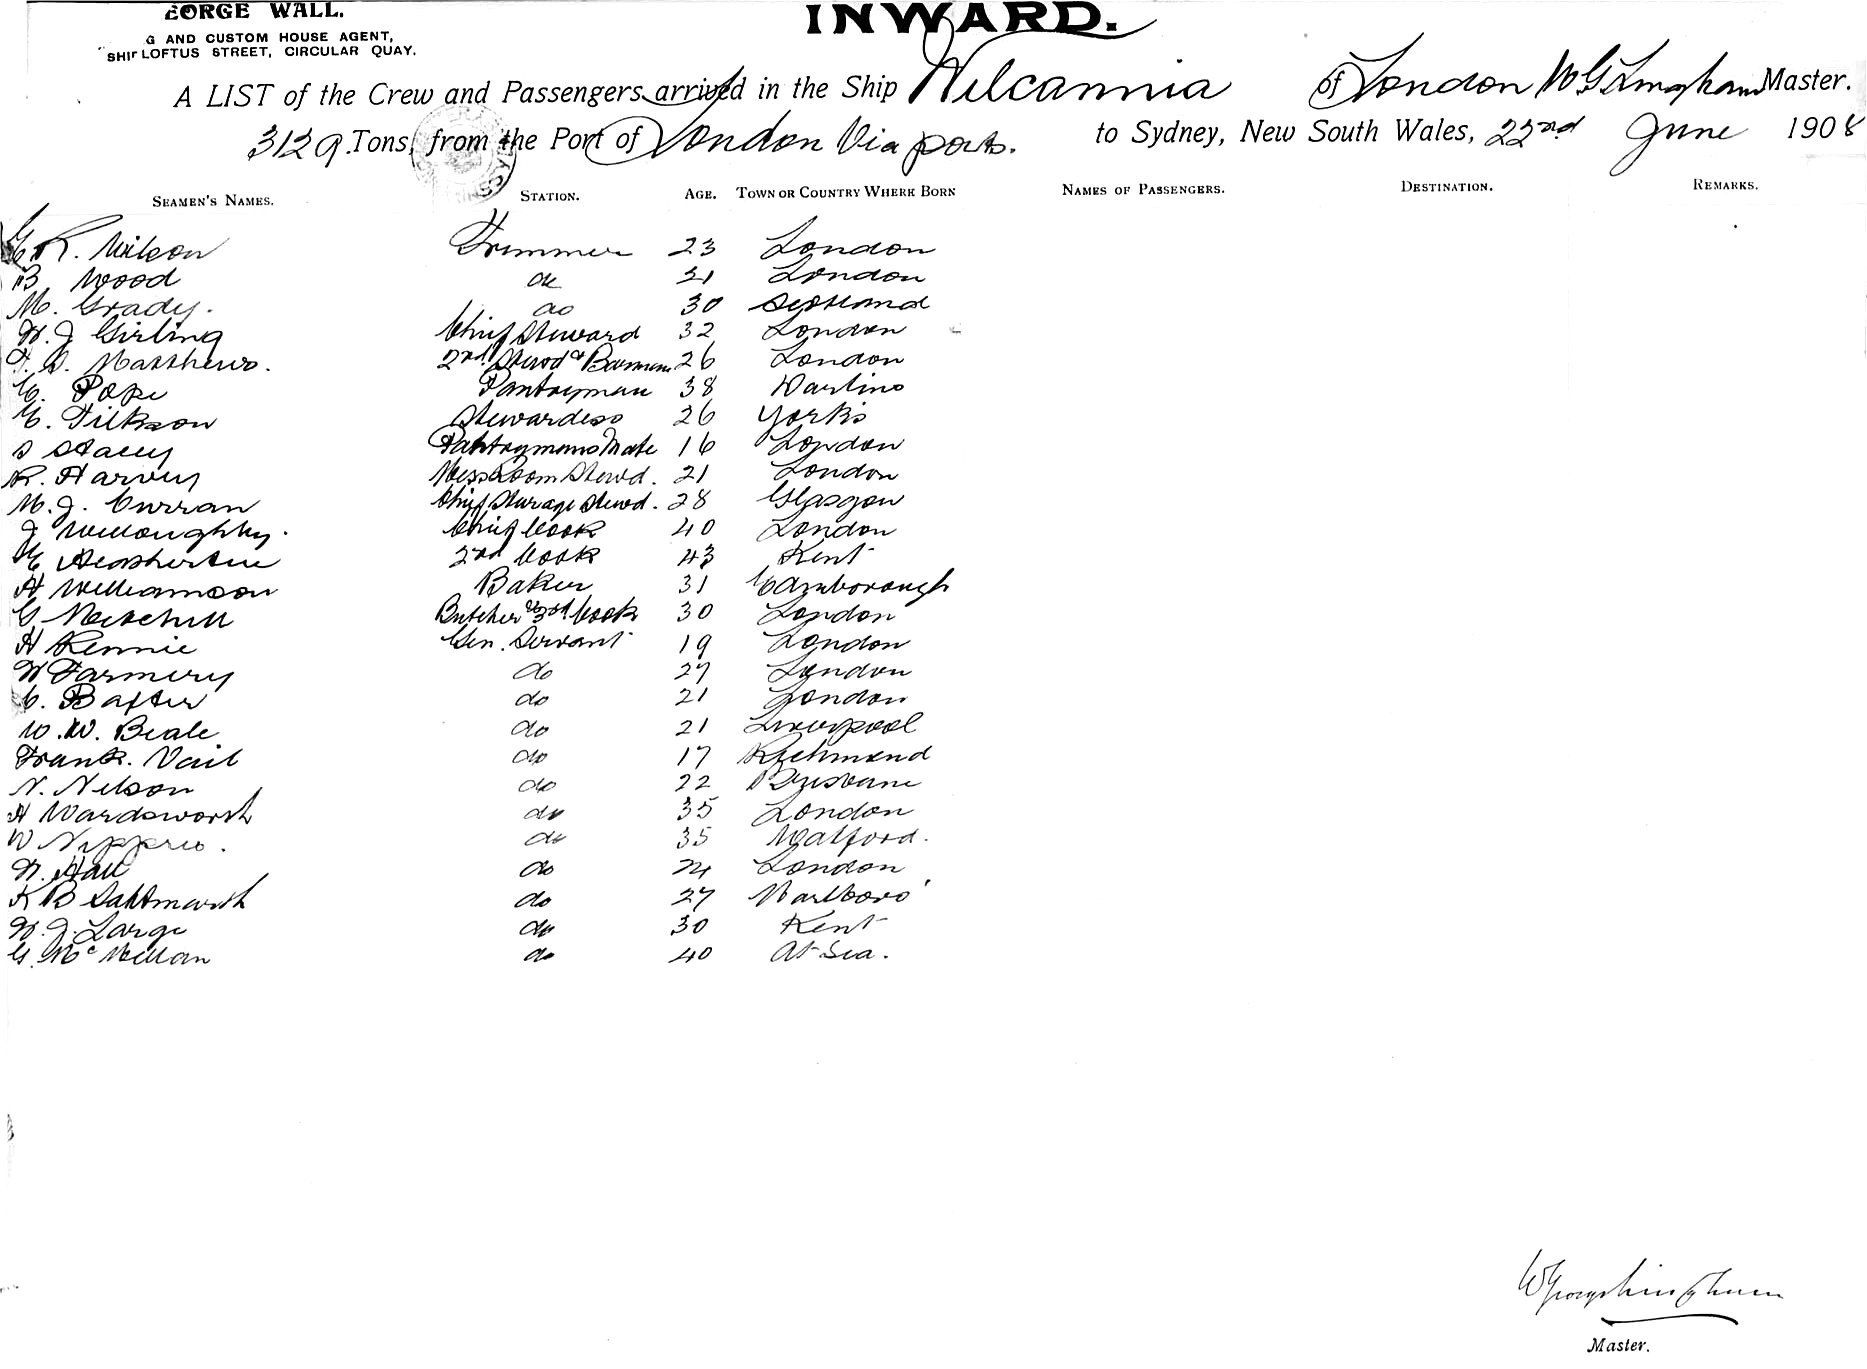 EORGE WALL.
G AND CUSTOM HOUSE AGENT,
SHIP LOFTUS STREET, CIRCULAR QUAY.
INWARD.
A LIST of the Crew and Passengers arrived in the Ship Wilcannia of London W G Lingham Master.
3129 Tons, from the Port of London Via ports. to Sydney, New South Wales, 22nd June 1908
SEAMEN'S NAMES. STATION. AGE. TOWN OR COUNTRY WHERE BORN NAMES OF PASSENGERS. DESTINATION. REMARKS.
R. Wilson Trimmer 23 London
B Wood do 21 London
M. Grady. do 30 Scotland
W. J Girling Chief Steward 32 London
Matthews. 2nd Stewd & Barman 26 London
E. Pope Pantryman 38 
E. Stewardess 26 Yorks
S Stacey Pantrymans Mate 16 London
R. Harvey Mess Room Stewd. 21 London
M. J. Curran Chief Sterage Stewd. 28 Glasgow
J Willoughby. Chief Cook 40 London
2nd Cook 43 Kent
A Williamson Baker 31 
G Mitchell Butcher & 3rd Cook 30 London
A Rennie Gen. Servant 19 London
W Farmery do 27 London
C. Baxter do 21 London
W. W. Beale do 21 Liverpool
Frank. Vail do 17 Richmond
N. Nelson do 22 Brisbane
A Wardsworth do 35 London
W do 35 Watford.
W. Hall do 24 London
K B Saltmarsh do 27 Marlboro'
W. J. Large do 30 Kent
G. McMillan do 40 At Sea.
Master.